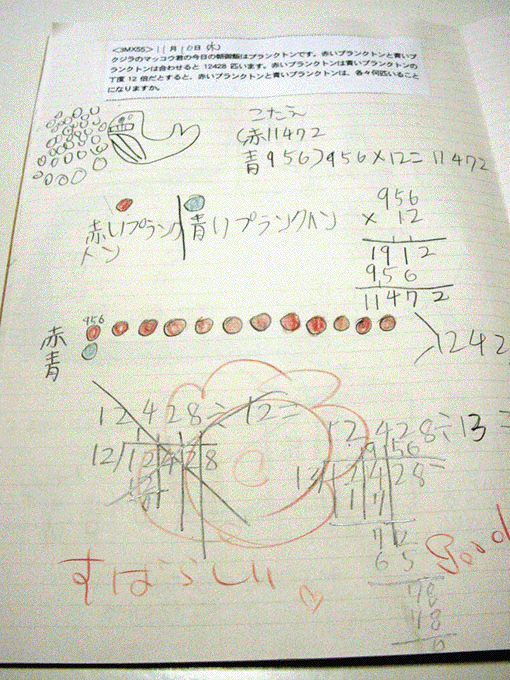 <3MX55> 11月10日(木)
クジラのマッコウ君の今日の朝御飯はプランクトンです。赤いプランクトンと青いプ
ランクトンは合わせると 12428 匹います。赤いプランクトンは青いプランクトンの
丁度 12 倍だとすると、赤いプランクトンと青いプランクトンは、各々何匹いること
になりますか。
こたえ
(赤11472
青956)956×12=11472
956
× 12
1912
956
11472
赤いプランク
トン
青いプランクトン
956
赤
青
1242
12428÷12=
1
12/12428
12
12428÷13=
956
13/12428
117
72
65
78
78
0
すばらしい
good